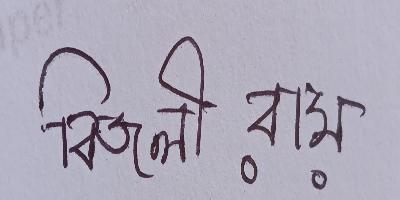 বিজলী রায়